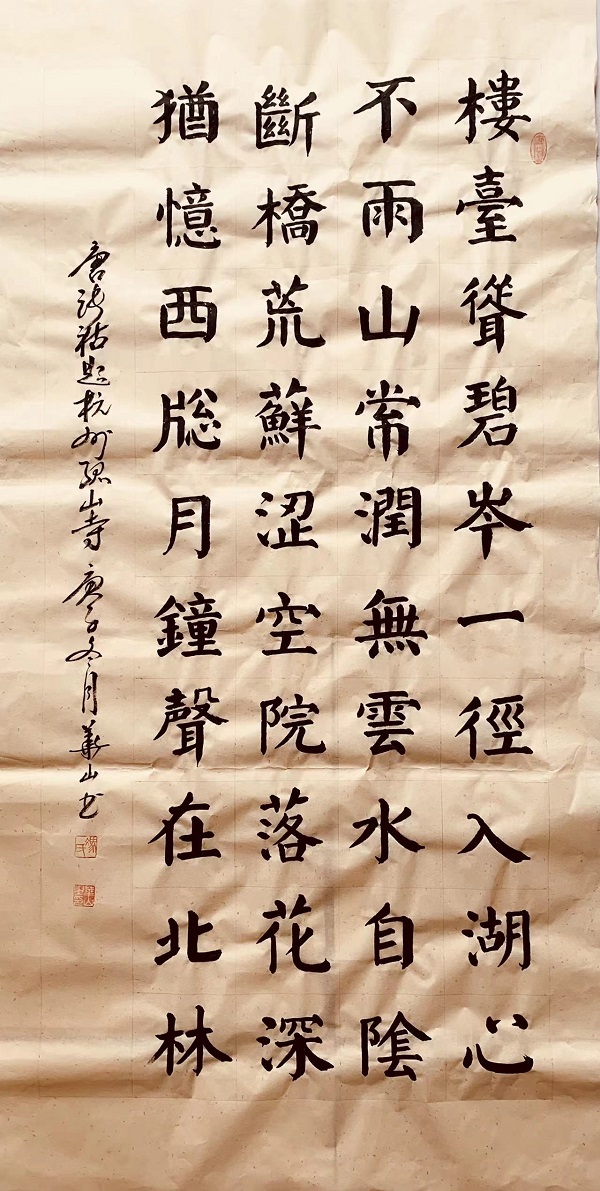 樓臺聳碧岑一徑入湖心
不雨山常潤無雲水自陰
斷橋荒蘚澀空院落花深
猶憶西牕月鐘聲在北林
唐張祜題杭州孤山寺 庚子冬月華山書